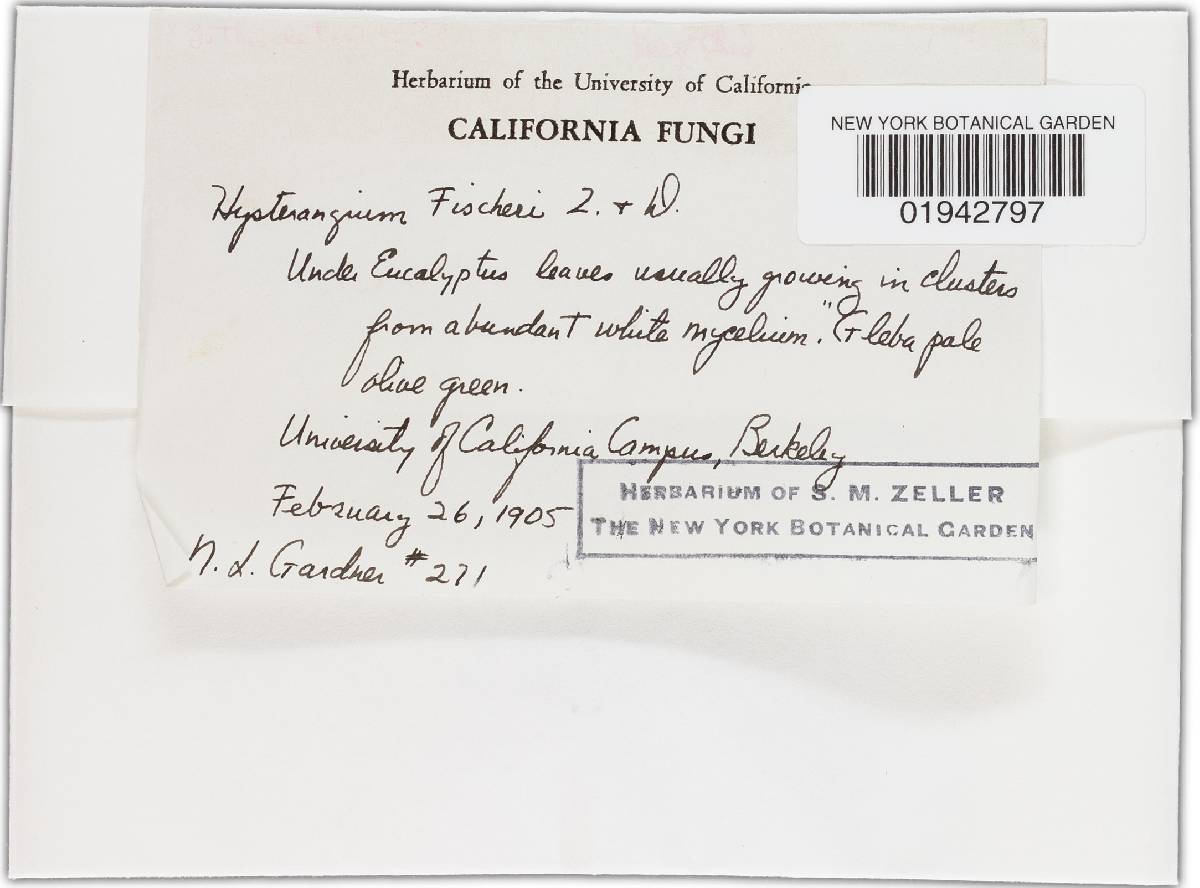 Herbarium of the University of California
CALIFORNIA FUNGI
NEW YORK BOTANICAL GARDEN
01942797
Hysterangium Fischeri Z. + D.
Under Eucalyptus leaves usually growing in clusters
from abundant white mycelium." Gleba pale
olive green.
University of California Campus, Berkeley
February 26, 1905
HERBARIUM OF S. M. ZELLER
THE NEW YORK BOTANICAL GARDEN
N. L. Gardner # 271